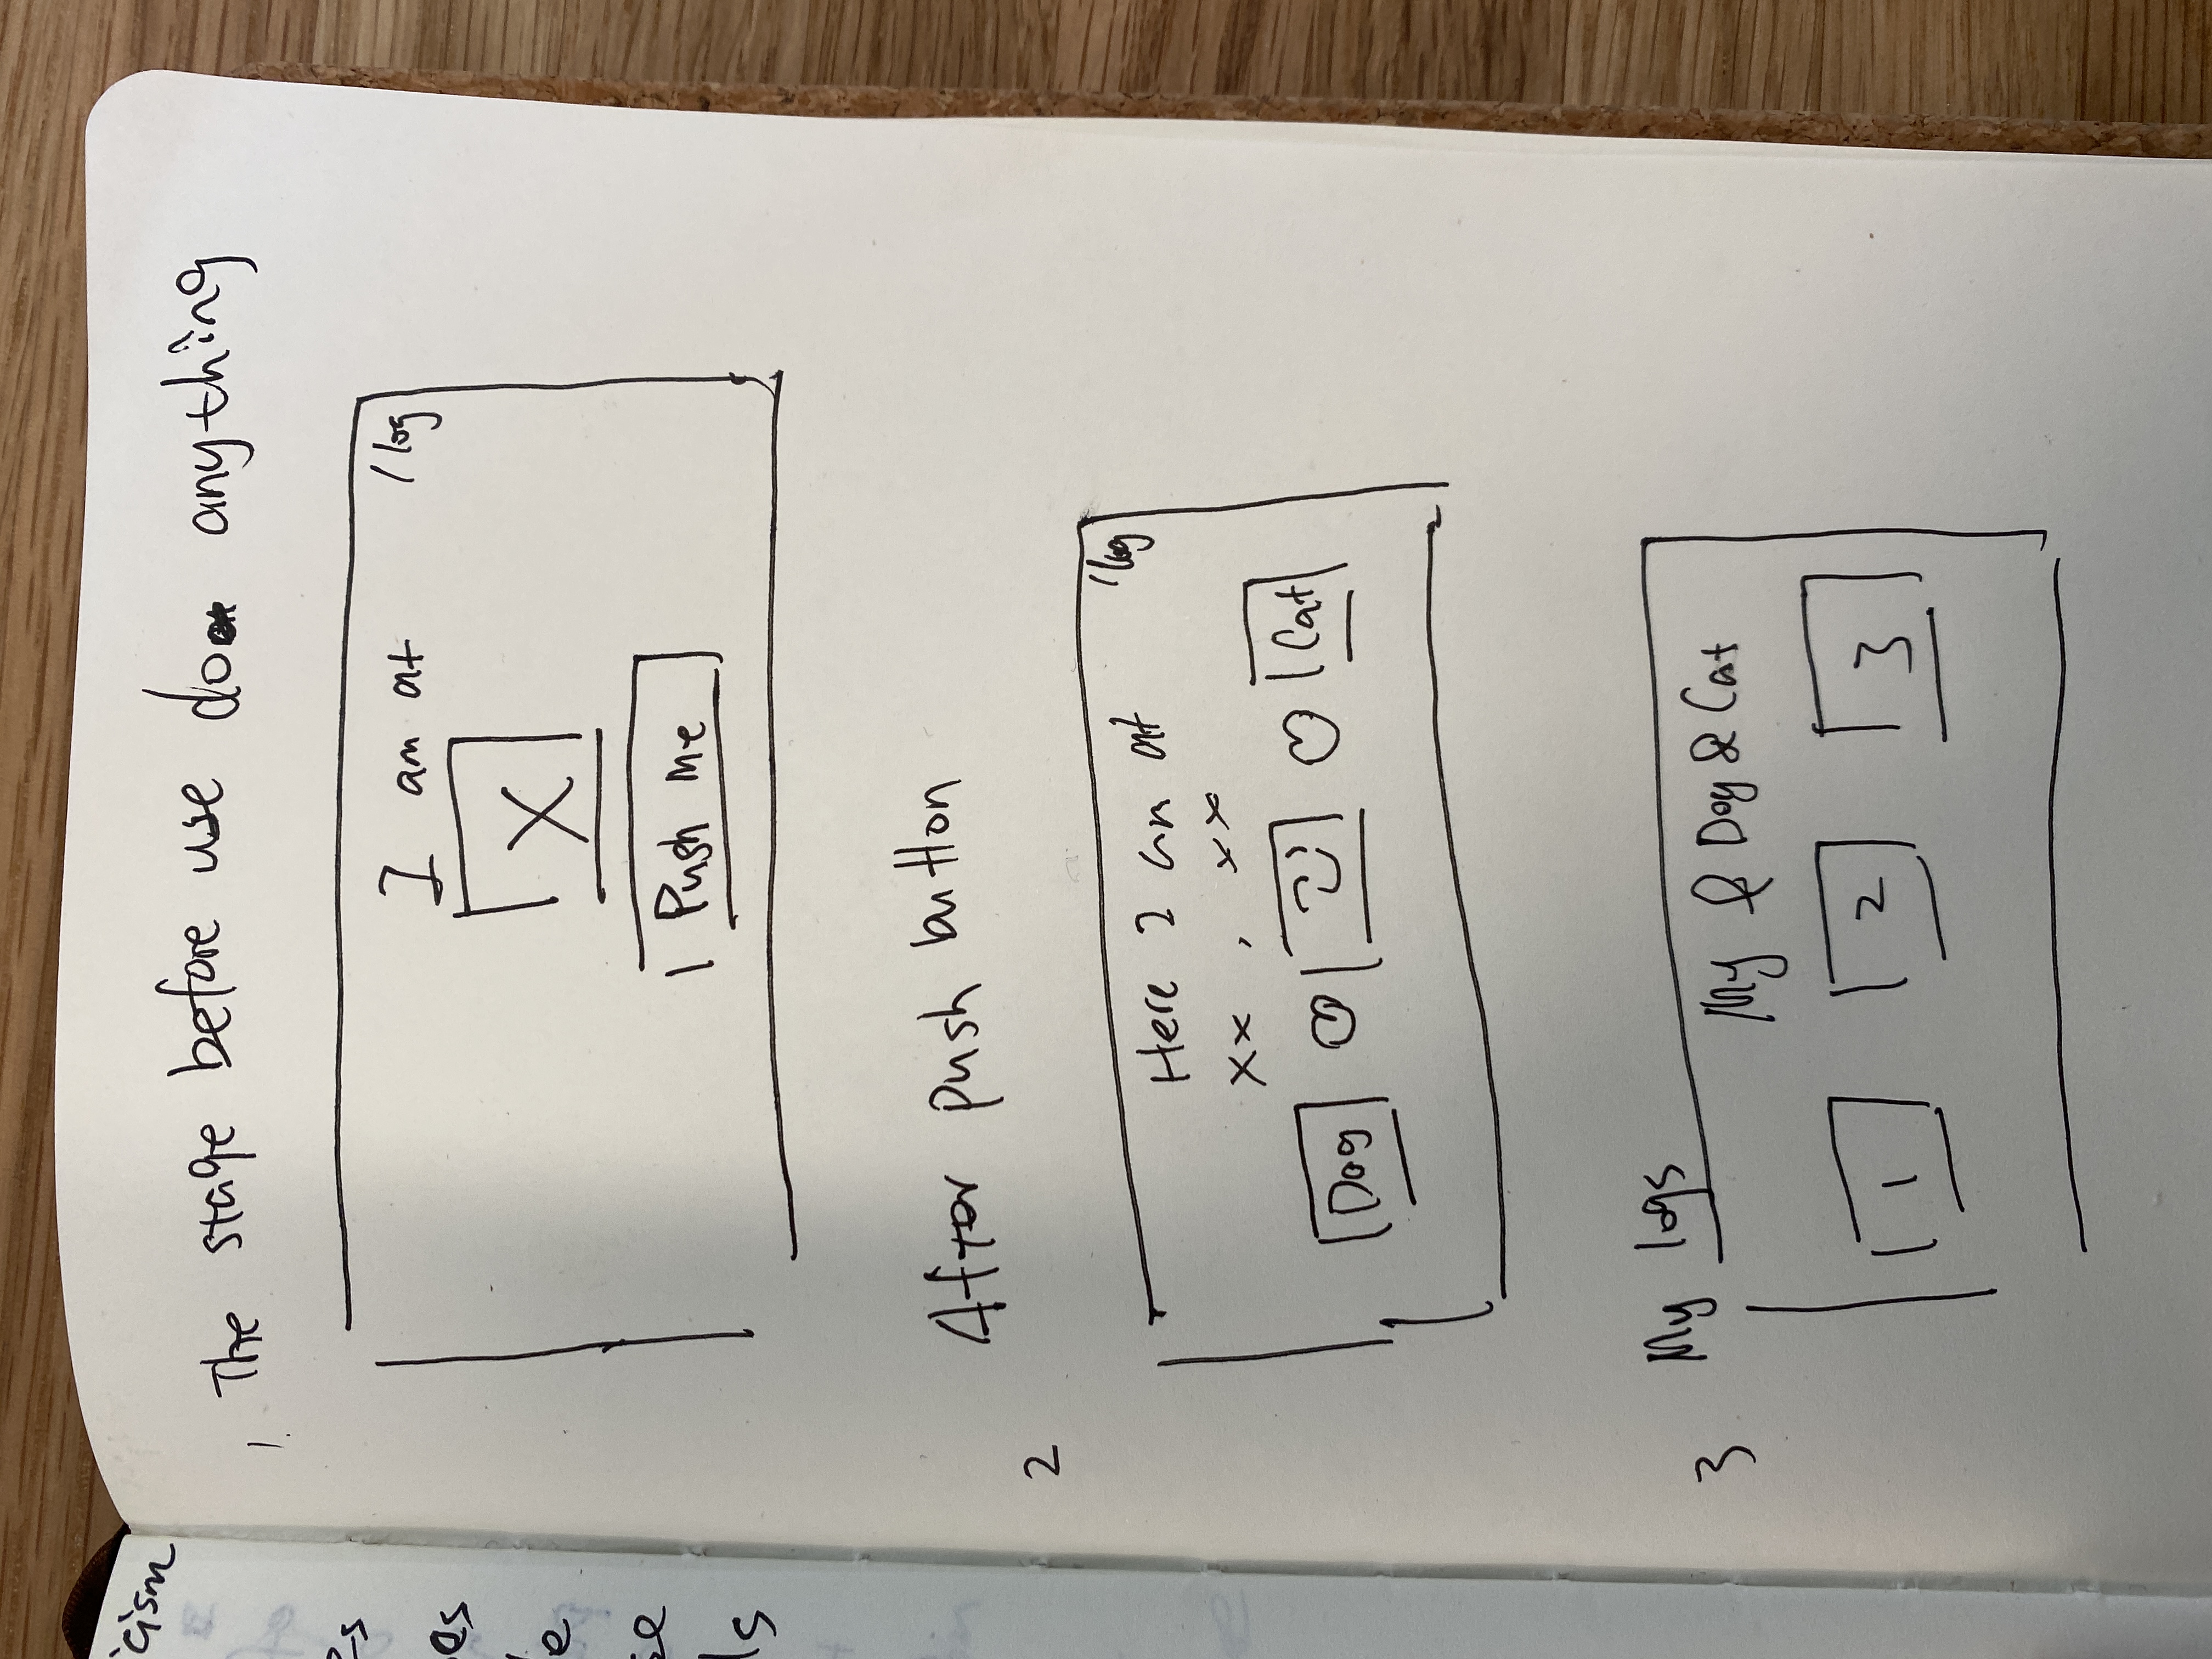 icism
es
es
e
se
ls
1. The stage before use do anything
I am at /log
X
Push me
After push button
2
Here I am at /log
xx , xx
Dog Cat
My logs
3
My & Dog & Cat
1 2 3